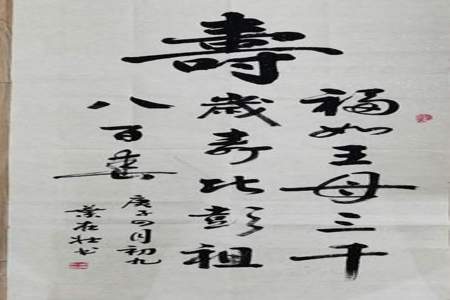 壽
福如王母三千
歲壽比彭祖
八百春
庚子四月初九
葉在社书